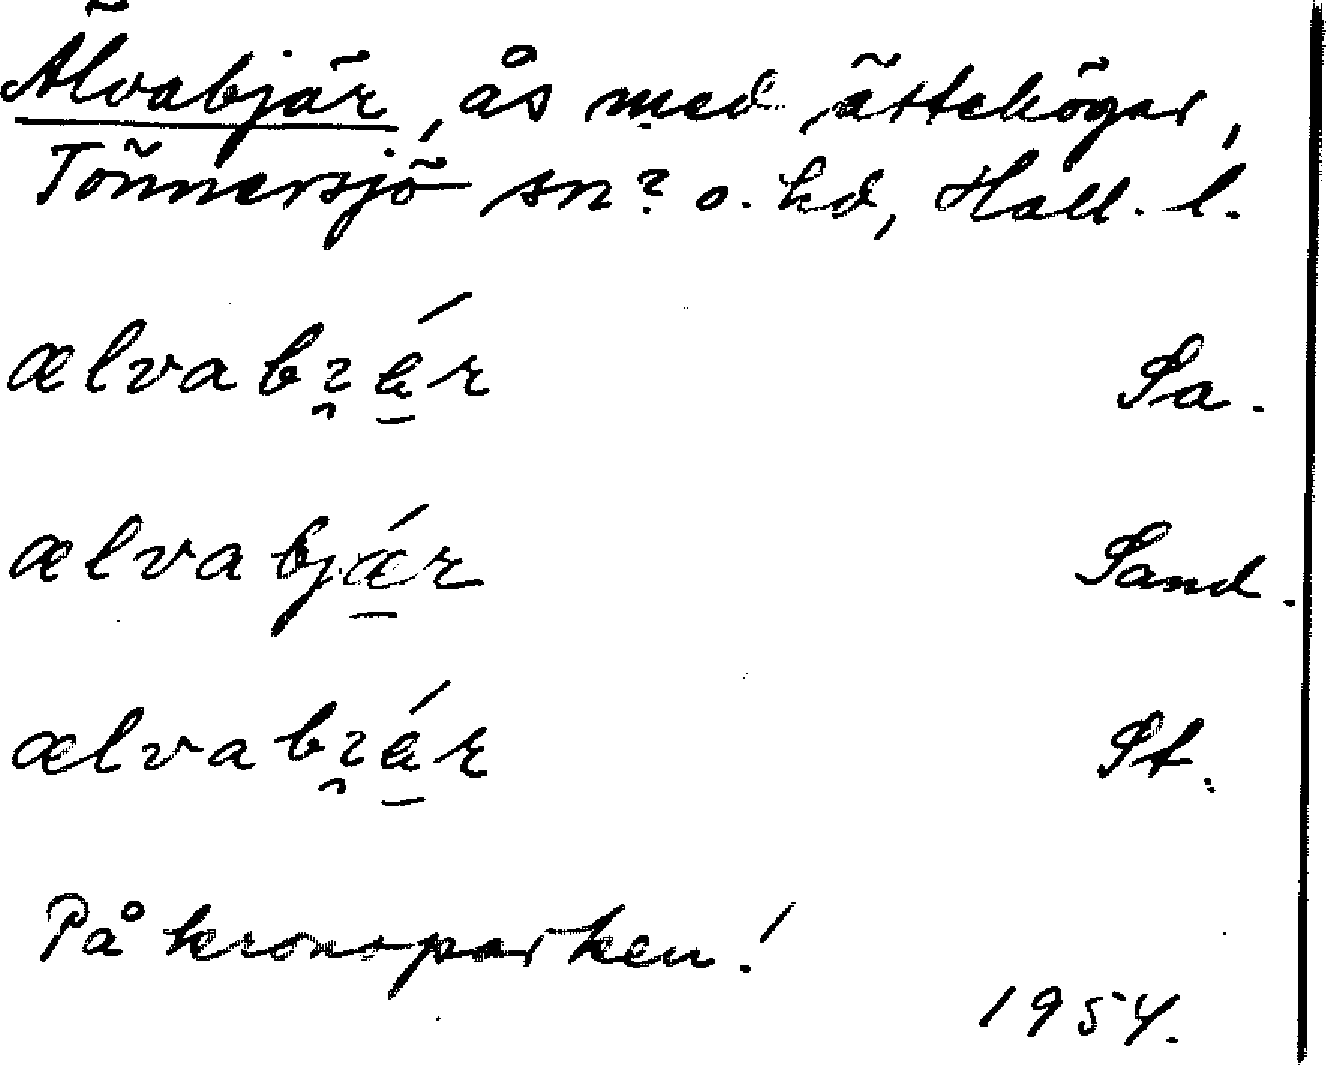 Älvabjär, ås med ättehögar,
Tönnersjö sn? o. hd, Hall. l.
ælvabɿ̯ǽ̠r Sa.
ælvabjǽ̠r Sand.
ælvabɿ̯ǽ̠r St.
På kronoparken!
1954.